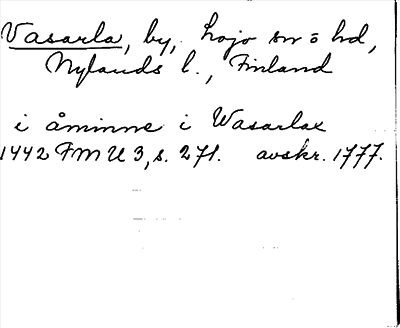 Vasarla, by, Lojo sn o hd,
Nylands l., Finland
i åminne i Wasarlax
1442 FMU 3, s. 271. avskr. 1777.